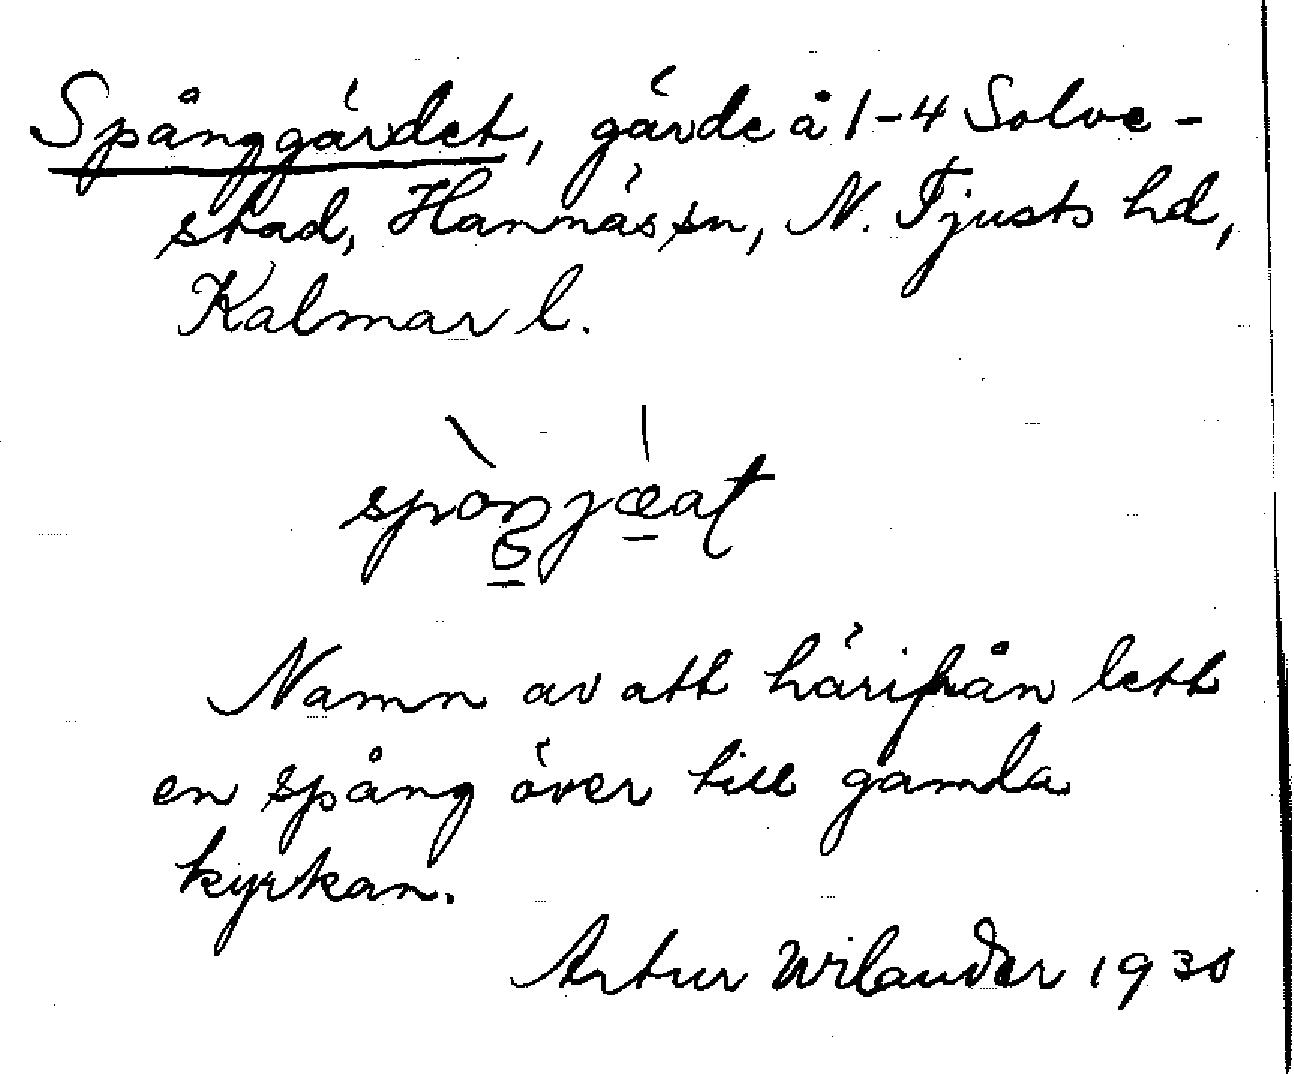 Spånggärdet, gärde å 1-4 Solve-
stad, Hannäs sn, N. Tjusts hd,
Kalmar l.
Namn av att härifrån lett
en spång över till gamla
kyrkan.
Artur Wilander 1930